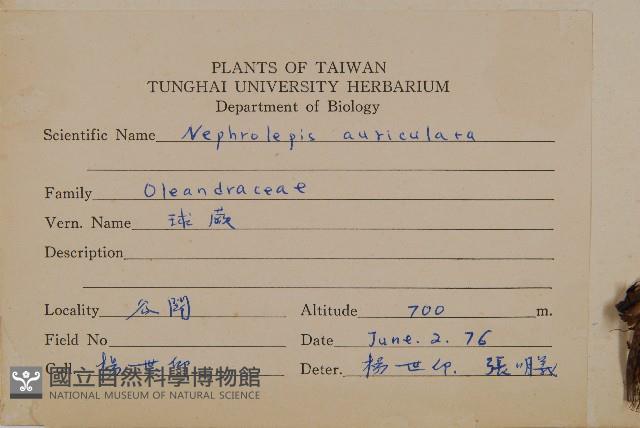 PLANTS OF TAIWAN
TUNGHAI UNIVERSITY HERBARIUM
Department of Biology
Scientific Name Nephrolepis auriculara
Family Oleandraceae
Vern. Name 球蕨
Description
Locality 谷關 Altitude 700 m.
Field No Date June. 2. 76
Coll. 楊世仰 Deter. 楊世仰. 張明義
國立自然科學博物館
NATIONAL MUSEUM OF NATURAL SCIENCE